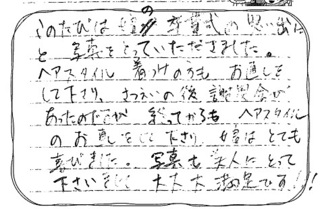 このたびは娘の卒業式の思い出に
と 写真をとっていただきました。
ヘアスタイル 着付の方も お直しを
して下さり、さつえいの後 謝恩会が
あったのですが 終ってからも ヘアスタイル
のお直しをして下さり、娘はとても
喜びました。写真も美人にとって
下さいまして 大大大満足です!!